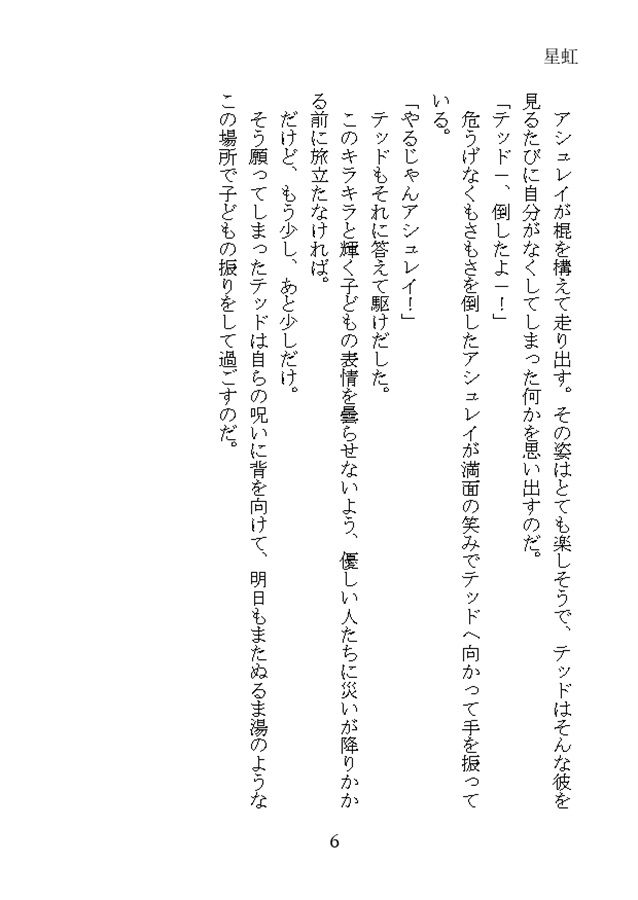 星虹
　アシュレイが棍を構えて走り出す。その姿はとても楽しそうで、テッドはそんな彼を
見るたびに自分がなくしてしまった何かを思い出すのだ。
「テッドー、倒したよー！」
　危うげなくもさもさを倒したアシュレイが満面の笑みでテッドへ向かって手を振って
いる。
「やるじゃんアシュレイ！」
　テッドもそれに答えて駆けだした。
　このキラキラと輝く子どもの表情を曇らせないよう、優しい人たちに災いが降りかか
る前に旅立たなければ。
　だけど、もう少し、あと少しだけ。
　そう願ってしまったテッドは自らの呪いに背を向けて、明日もまたぬるま湯のような
この場所で子どもの振りをして過ごすのだ。
6